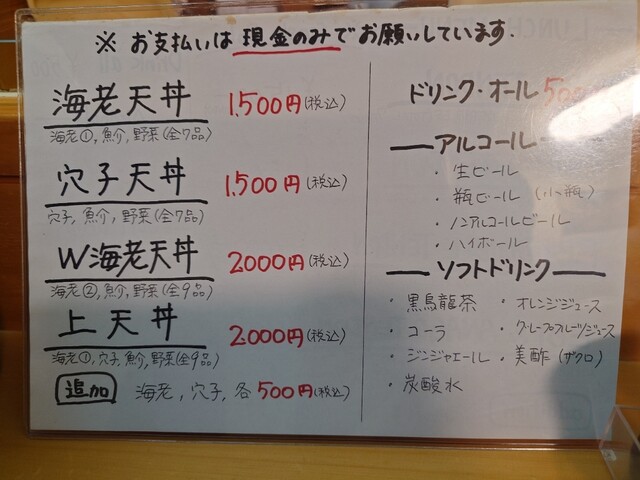 ※ お支払いは 現金のみでお願いしています.
海老天丼 1,500円(税込)
海老①, 魚介, 野菜(全7品)
穴子天丼 1,500円(税込)
穴子, 魚介, 野菜(全7品)
W海老天丼 2000円(税込)
海老②, 魚介, 野菜(全9品)
上天丼 2,000円(税込)
海老①, 穴子, 魚介, 野菜(全9品)
追加 海老, 穴子, 各500円(税込)
ドリンク・オール
アルコール
・生ビール
・瓶ビール (小瓶)
・ノンアルコールビール
・ハイボール
ソフトドリンク
・黒烏龍茶 ・オレンジジュース
・コーラ ・グレープフルーツジュース
・ジンジャエール ・美酢(ザクロ)
・炭酸水